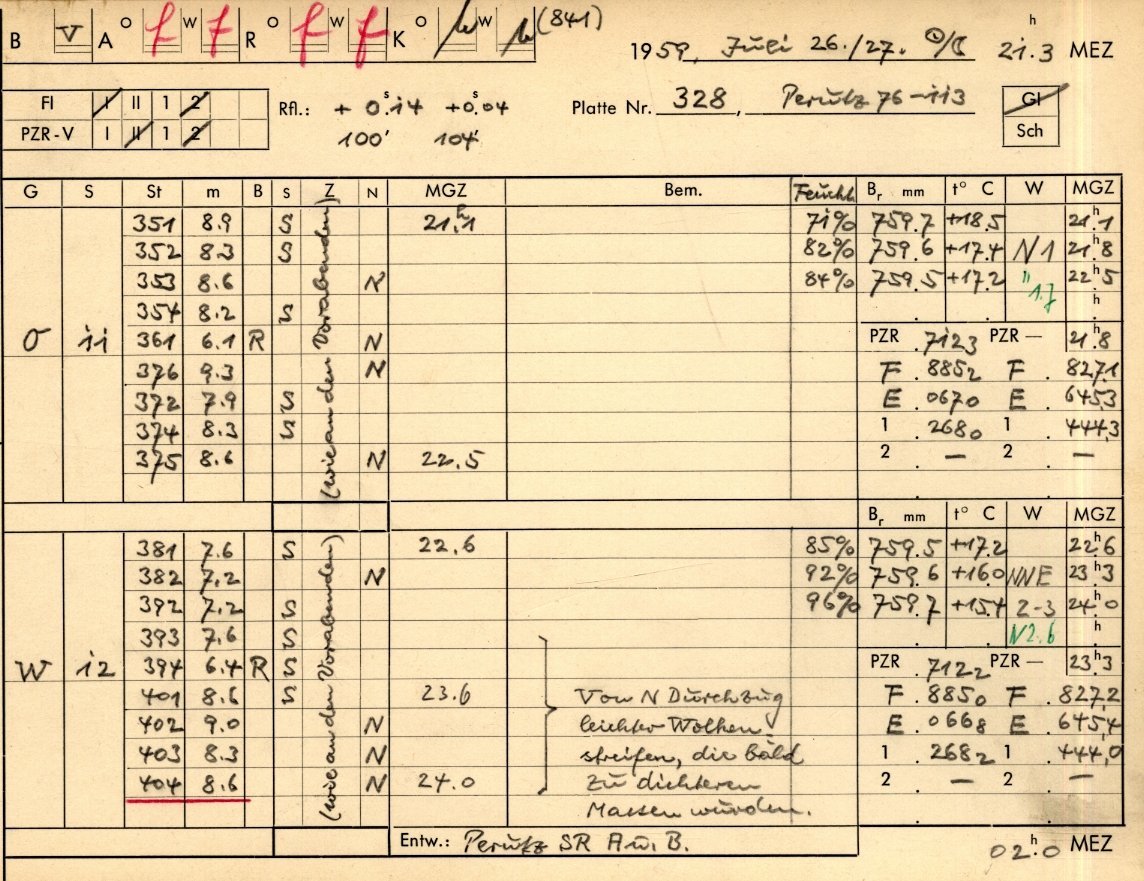 B V A O f W f R O f W f K O W (841)
1959, Juli 26./27. 21.3 h MEZ
FI I II 1 2 Rfl.: + 0.s14 +0.s04 Platte Nr. 328, Perutz 76-113 Gl
PZR-V I II 1 2 100' 104' Sch
G S St m B S Z N MGZ Bem. Feucht. Br mm t° C W MGZ
351 8.9 S 21.h1 71% 759.7 +18.5 21.h1
352 8.3 S 82% 759.6 +17.4 N1 21.h8
353 8.6 N 84% 759.5 +17.2 " 22.h5
1.7
354 8.2 S . . h
O 11 361 6.1 R N PZR .7123 PZR — 21.h8
376 9.3 N F .8852 F . 827,1
372 7.9 S E .0670 E . 645,3
374 8.3 S 1 .2680 1 444,3
375 8.6 N 22.5 2 . — 2 . —
(wie an den Vorabenden)
Br mm t° C W MGZ
381 7.6 S 22.6 85% 759.5 +17.2 22.h6
382 7.2 N 92% 759.6 +16.0 NNE 23.h3
392 7.2 S 96% 759.7 +15.4 2-3 24.h0
393 7.6 S N2.6 h
W 12 394 6.4 R S PZR .7122 PZR — 23.h3
401 8.6 S 23.6 Von N Durchzug F .8850 F . 827,2
402 9.0 N leichter Wolken- E .0668 E . 645,4
403 8.3 N streifen, die bald 1 .2682 1 444,0
404 8.6 N 24.0 zu dichteren 2 . — 2 . —
Massen wurden.
(wie an den Vorabenden)
Entw.: Perutz SR A u. B. 02.h0 MEZ